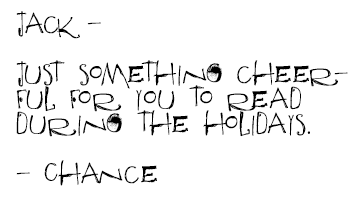 JACK –
JUST SOMETHING CHEER–
FUL FOR YOU TO READ
DURING THE HOLIDAYS.
– CHANCE